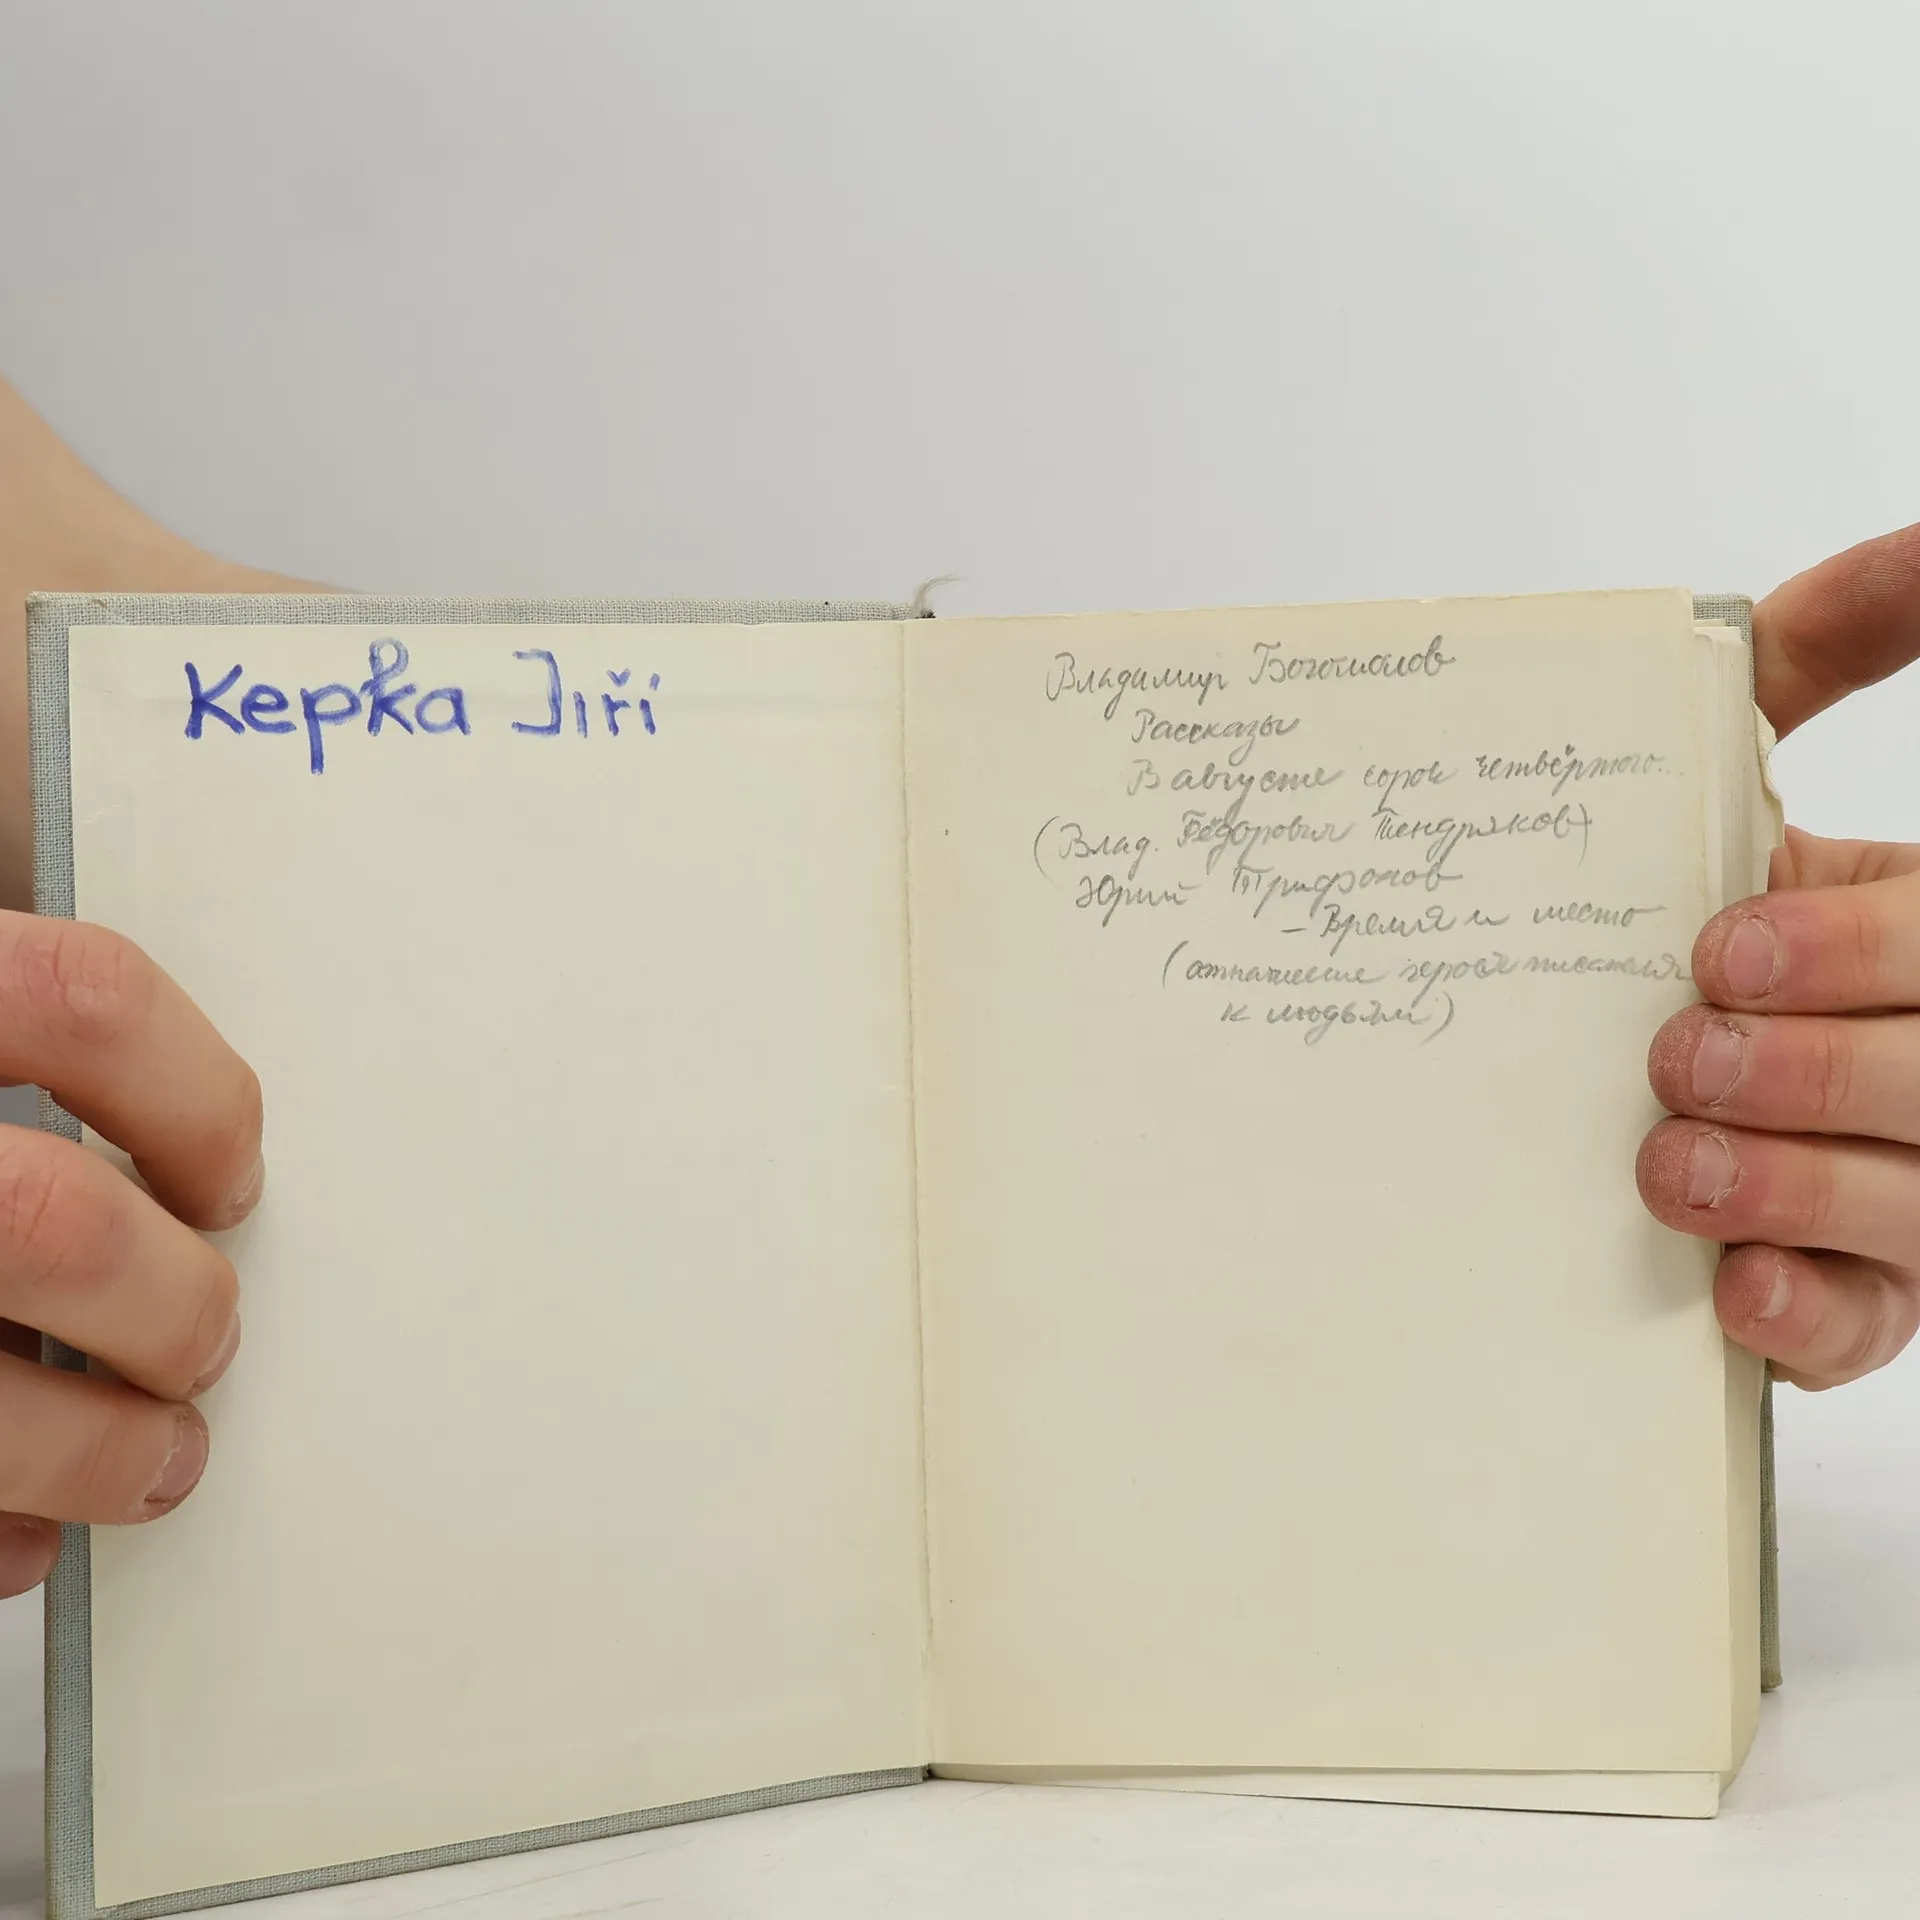 Kepka Jiří
Владимир Богомолов
Рассказы
В августе сорок четвёртого...
(Влад. Фёдорович Тендряков)
Юрий Трифонов
– Время и место
(отношение героя писателя
к людьям)